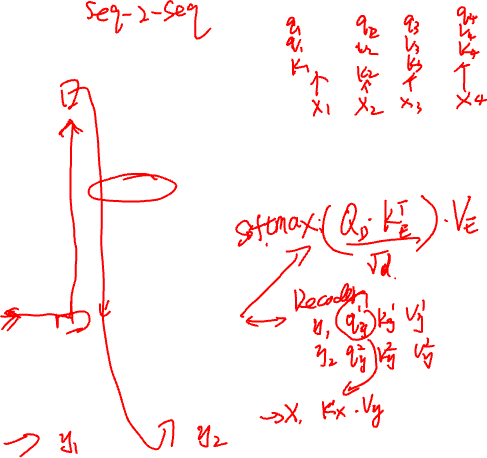 Seq-2-Seq
q₁ q₂ q₃ q₄
v₁ v₂ v₃ v₄
K₁ K₂ K₃ K₄
x₁ x₂ x₃ x₄
Softmax(Q_D · K_E^T / √d) · V_E
Decoder
y₁ q_y^1 K_y^1 V_y^1
y₂ q_y^2 K_y^2 V_y^2
→ X, K_x · V_y
→ y₁ y₂